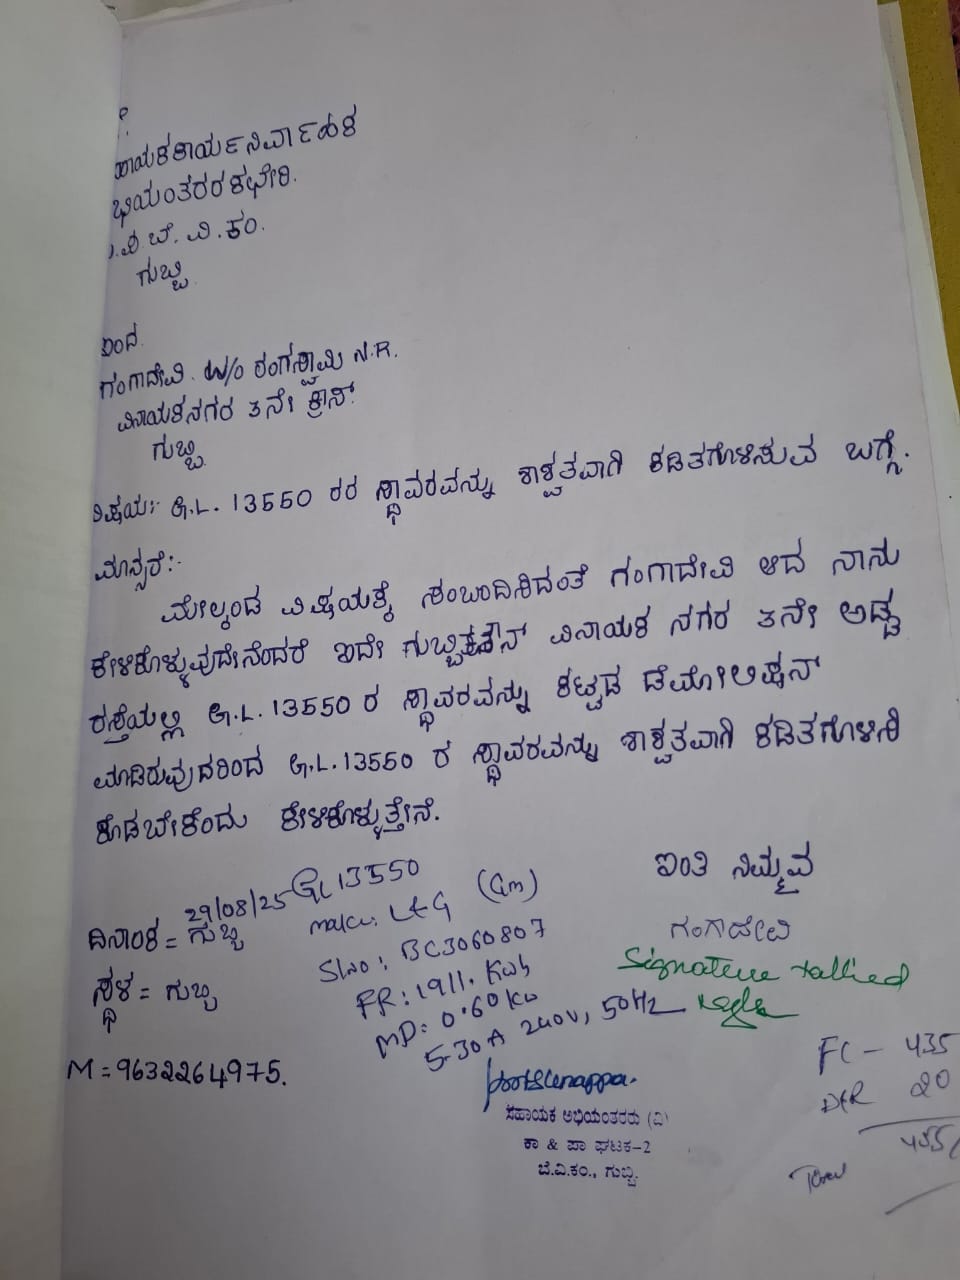 ಸಹಾಯಕ ಕಾರ್ಯನಿರ್ವಾಹಕ
ಭಿಯಂತರರ ಕಛೇರಿ.
ಬೆ.ವಿ.ಕಂ.
ಗುಬ್ಬಿ
ಇಂದ.
ಗಂಗಾದೇವಿ. W/o ರಂಗಸ್ವಾಮಿ N.R.
ವಿನಾಯಕನಗರ 3ನೇ ಕ್ರಾಸ್
ಗುಬ್ಬಿ
ವಿಷಯ:- G.L. 13550 ರರ ಸ್ಥಾವರವನ್ನು ಶಾಶ್ವತವಾಗಿ ಕಡಿತಗೊಳಿಸುವ ಬಗ್ಗೆ.
ಮಾನ್ಯರೆ:-
ಮೇಲ್ಕಂಡ ವಿಷಯಕ್ಕೆ ಸಂಬಂದಿಸಿದಂತೆ ಗಂಗಾದೇವಿ ಆದ ನಾನು
ಕೇಳಿಕೊಳ್ಳುವುದೇನೆಂದರೆ ಇದೇ ಗುಬ್ಬಿ ಟೌನ್ ವಿನಾಯಕ ನಗರ 3ನೇ ಅಡ್ಡ
ರಸ್ತೆಯಲ್ಲಿ G.L.13550 ರ ಸ್ಥಾವರವನ್ನು ಕಟ್ಟಡ ಡೆಮೋಲಿಷನ್
ಮಾಡಿರುವುದರಿಂದ G.L.13550 ರ ಸ್ಥಾವರವನ್ನು ಶಾಶ್ವತವಾಗಿ ಕಡಿತಗೊಳಿಸಿ
ಕೊಡಬೇಕೆಂದು ಕೇಳಿಕೊಳ್ಳುತ್ತೇನೆ.
ಇಂತಿ ನಿಮ್ಮವ
ಗಂಗಾದೇವಿ
Signature tallied
29/08/25
ದಿನಾಂಕ = ಗುಬ್ಬಿ
ಸ್ಥಳ = ಗುಬ್ಬಿ
M = 9632264975.
GL 13550
make: L&G (Gm)
Sl no: BC3060807
FR: 1911. Kwh
MD: 0.60 Kw
5-30A 240V, 50Hz
ಸಹಾಯಕ ಅಭಿಯಂತರರು (ವಿ)
ಕಾ & ಪಾ ಘಟಕ-2
ಬೆ.ವಿ.ಕಂ., ಗುಬ್ಬಿ.
FC - 435
D&R 20
Total 455/